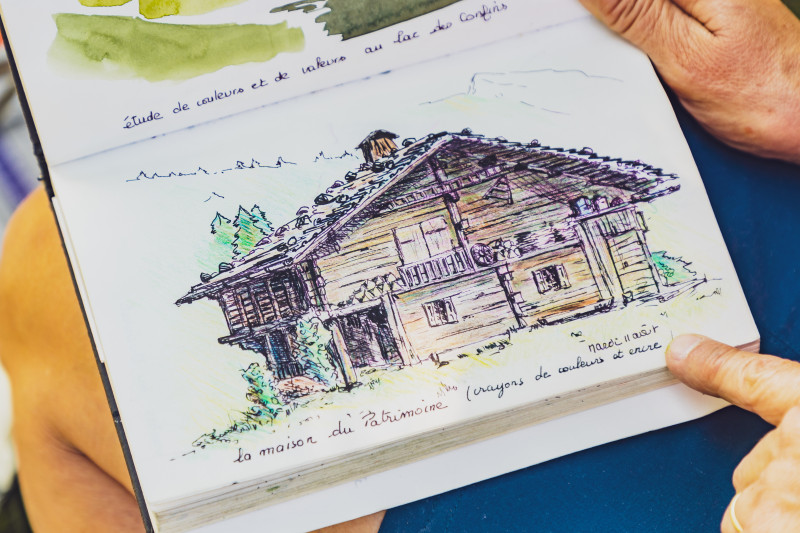 étude de couleurs et de valeurs au lac des Confins
mardi 11 août
la maison du Patrimoine (crayons de couleurs et encre)